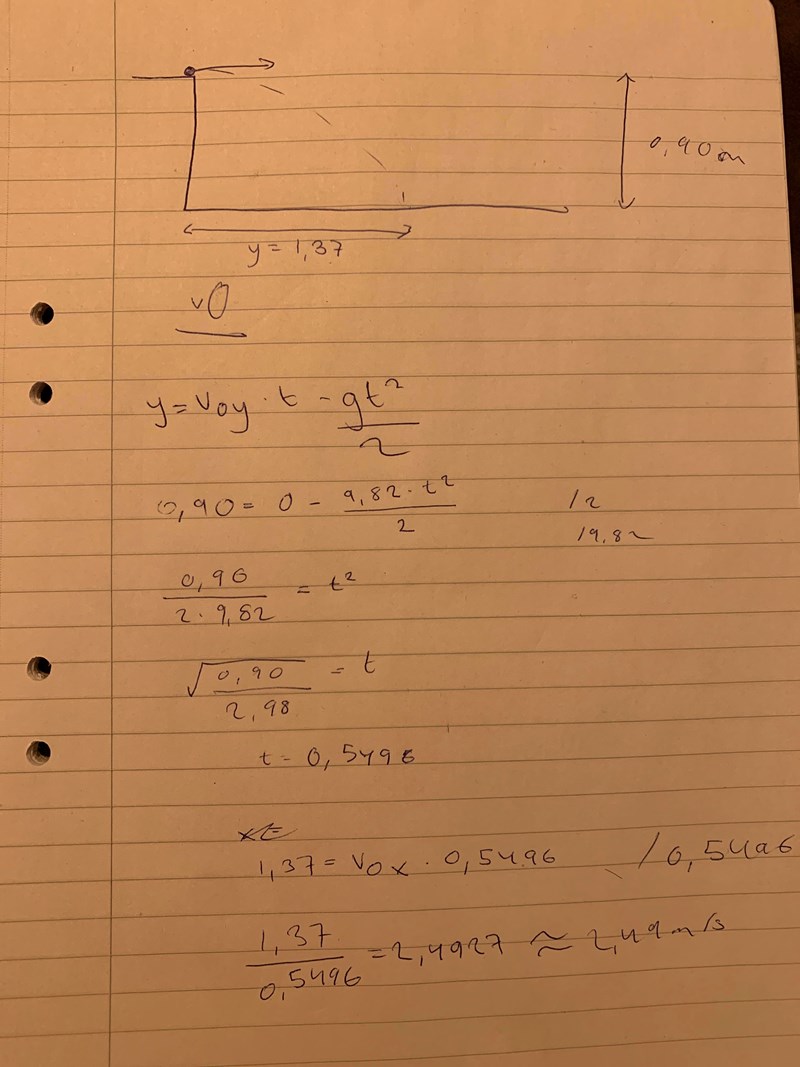 0,90m
y = 1,37
v0
y = v0y · t - gt²/2
0,90 = 0 - 9,82 · t²/2 /2
/9,82
0,90/2 · 9,82 = t²
√0,90/2,98 = t
t = 0,5496
xt
1,37 = v0x · 0,5496 /0,5496
1,37/0,5496 = 2,4927 ≈ 2,49 m/s